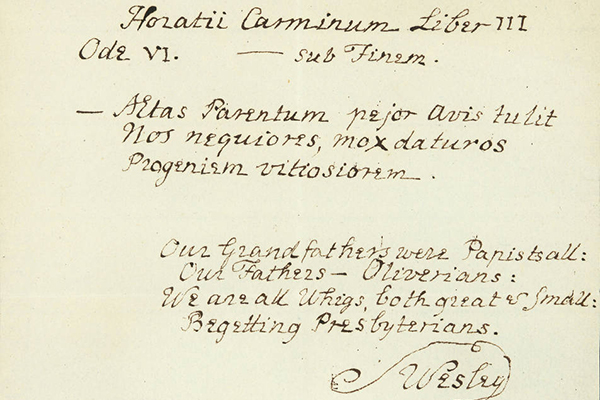 Horatii Carminum Liber III
Ode VI. — sub Finem.
— Ætas Parentum pejor Avis tulit
Nos nequiores, mox daturos
Progeniem vitiosiorem.
Our Grandfathers were Papists all:
Our Fathers — Oliverians:
We are all Whigs, both great & Small:
Begetting Presbyterians.
S Wesley